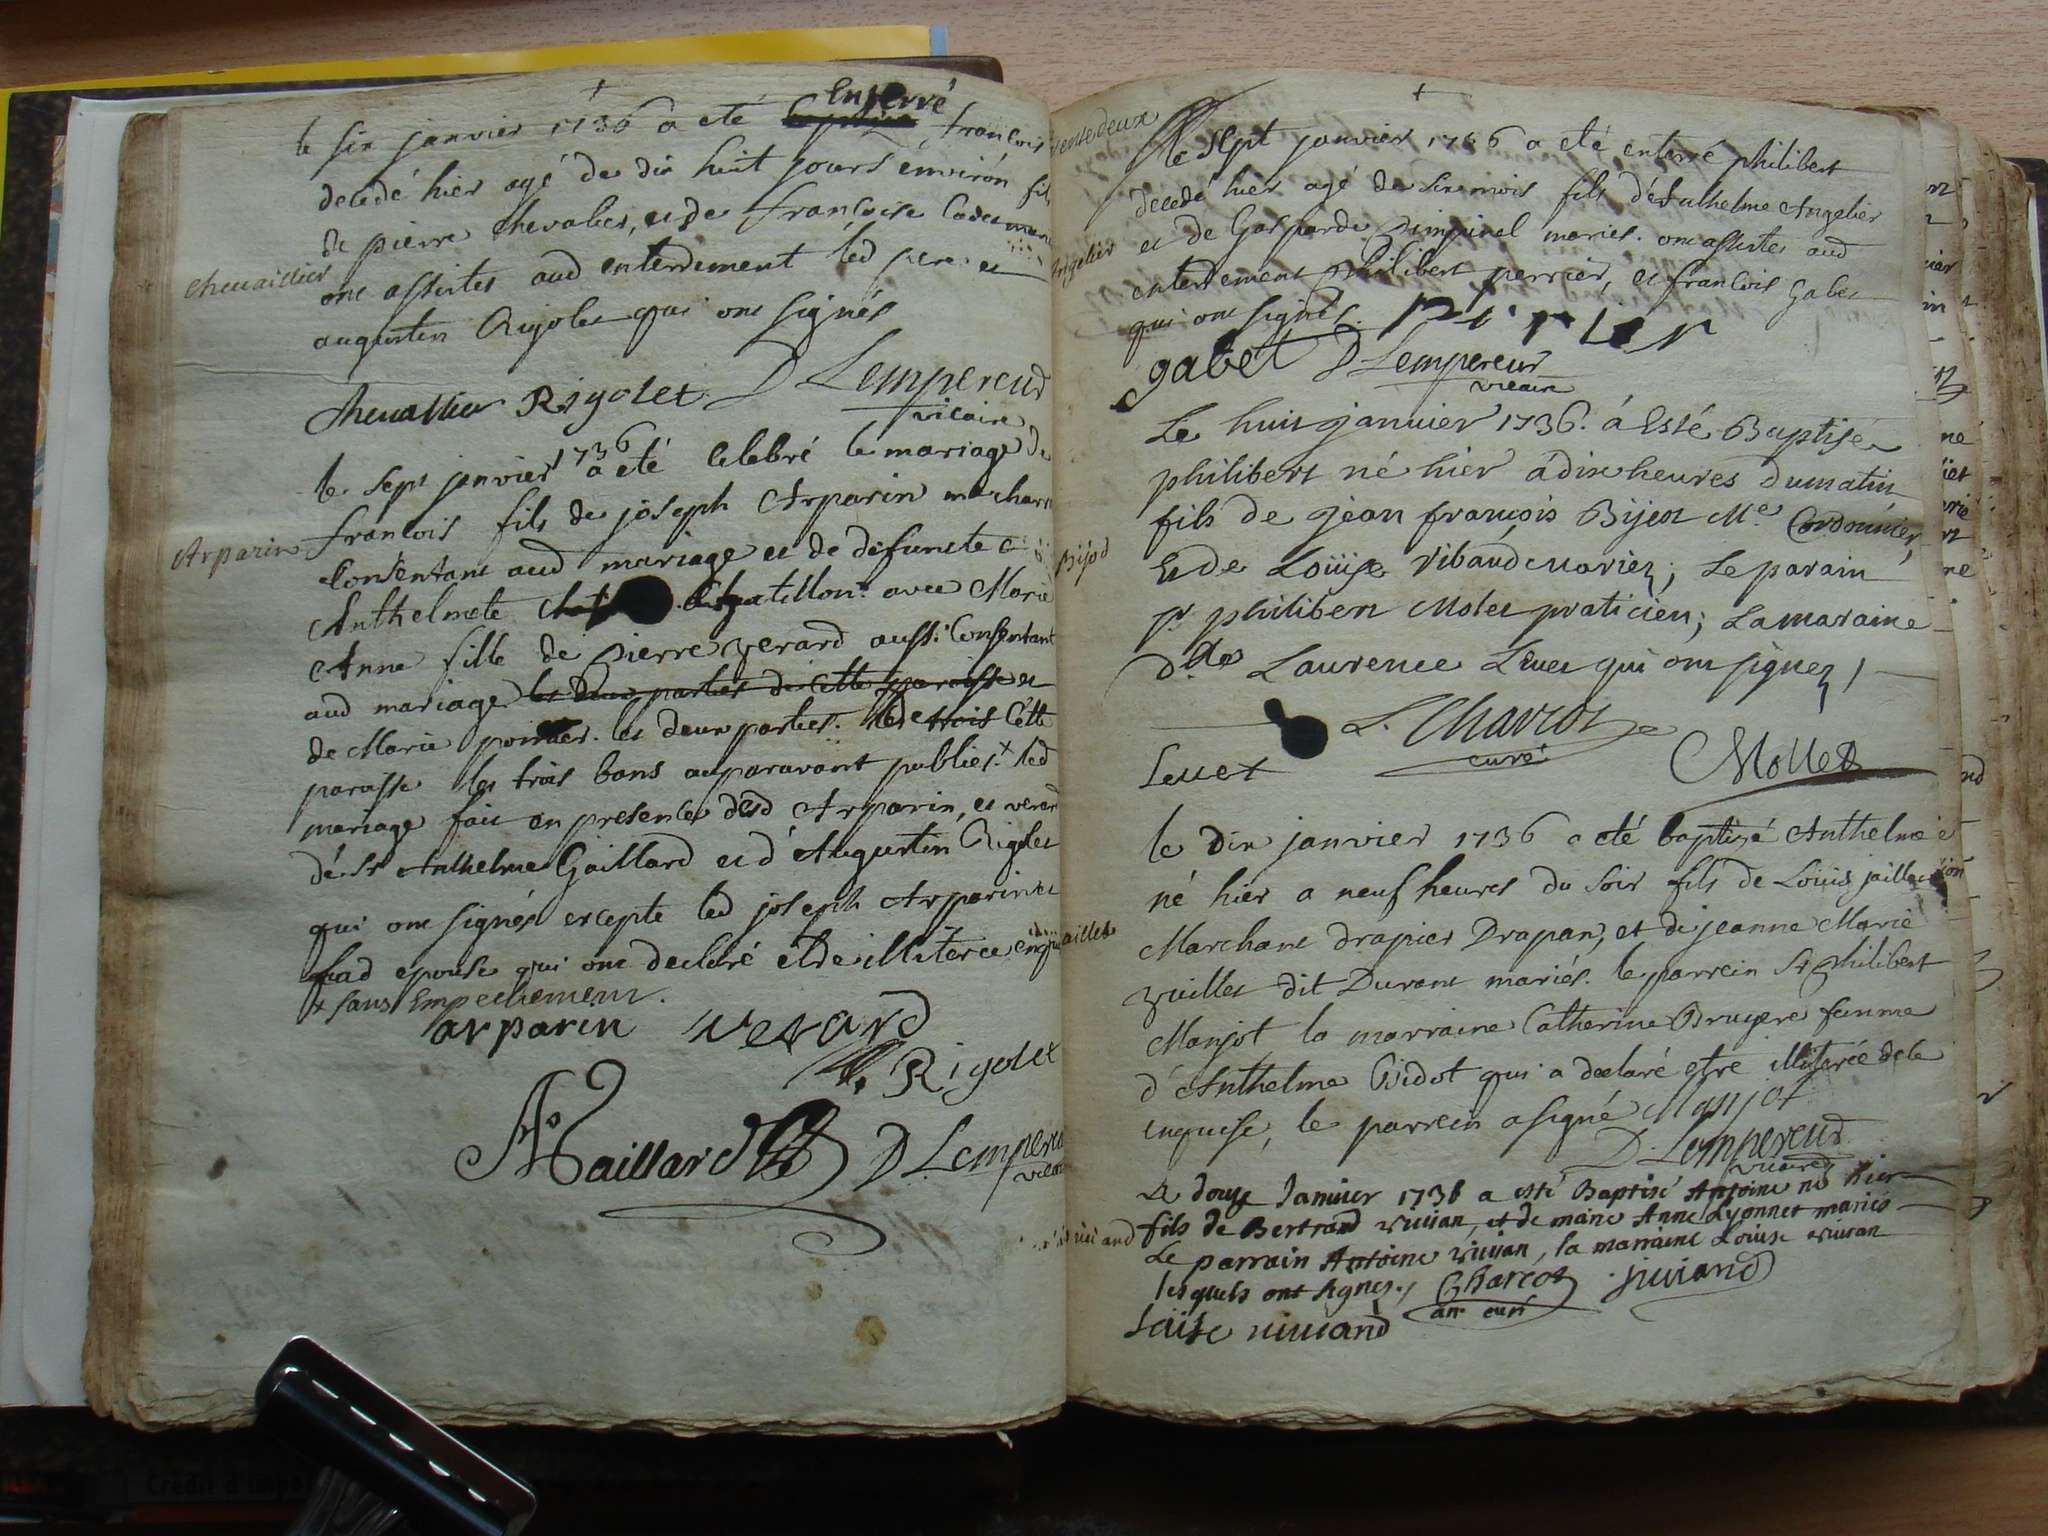 enterré
le six janvier 1736 a eté françois
decedé hier agé de dix huit jours environ fils
de pierre chevalier, et de françoise
Chevaillier
ont assistes aud enterrement led pere et
augustin Rigolet qui ont signés
Chevallier Rigolet D Lempereur
vicaire
1736
le sept janvier a eté Celebré le mariage de
françois fils de joseph Arparin marchant
Arparin
Consentant aud mariage et de defuncte
Anthelmete chatillon. avec Marie
Anne fille de pierre verard aussi Consentant
aud mariage les deux parties de cette paroisse et
de Marie les deux parties. de cette
paroisse les trois bans auparavant publies x led
mariage fait en presence desd Arparin, et verard
de Sr Anthelme Gaillard et d'Augustin Rigolet
qui ont signés excepte led joseph Arparin et
lad epouse qui ont declaré etre illiteree enquis
x sans Empechement.
arparin verard
Rigolet
Gaillard D Lempereur
vicaire
trente deux
le sept janvier 1736 a eté enterré philibert
decedé hier agé de six mois fils d'Anthelme Angelier
Angelier
et de Gasparde pimpinel maries. ont assistes aud
enterrement philibert perrier, et françois Gabet
qui ont signés. perrier
gabet D Lempereur
vicaire
Le huit janvier 1736. á Esté Baptisé
philibert né hier á dix heures du matin
fils de jean françois Bijot Me. Cordonnier,
Bijod
Et de Loüise Ribaud mariez; Le parain
Sr philibert Molet praticien; La maraine
dlle Laurence Levet qui ont signez /
L. Charcot
curé
Levet Mollet
le Dix janvier 1736 a eté baptizé Anthelme
né hier a neuf heures du soir fils de Loüis jaillet
Marchant drapier Drapan, et de jeanne Marie
jaillet
vuillet dit Durant mariés. le parrein Sr philibert
Manjot la marraine Catherine Bruyere femme
d'Anthelme Bidot qui a declaré etre illiterée de ce
enquise, le parrein a signé Manjot
D. Lempereur
vicaire
Le douze Janvier 1736 a esté Baptisé Antoine né hier
fils de Bertrand vivian, et de marie Anne Lyonnet mariés
viviand
Le parrain Antoine vivian, la marraine Loüise vivian
lesquels ont signes. / Charcot viviand
an. curé
Loüise viviand
Crédit d'impô